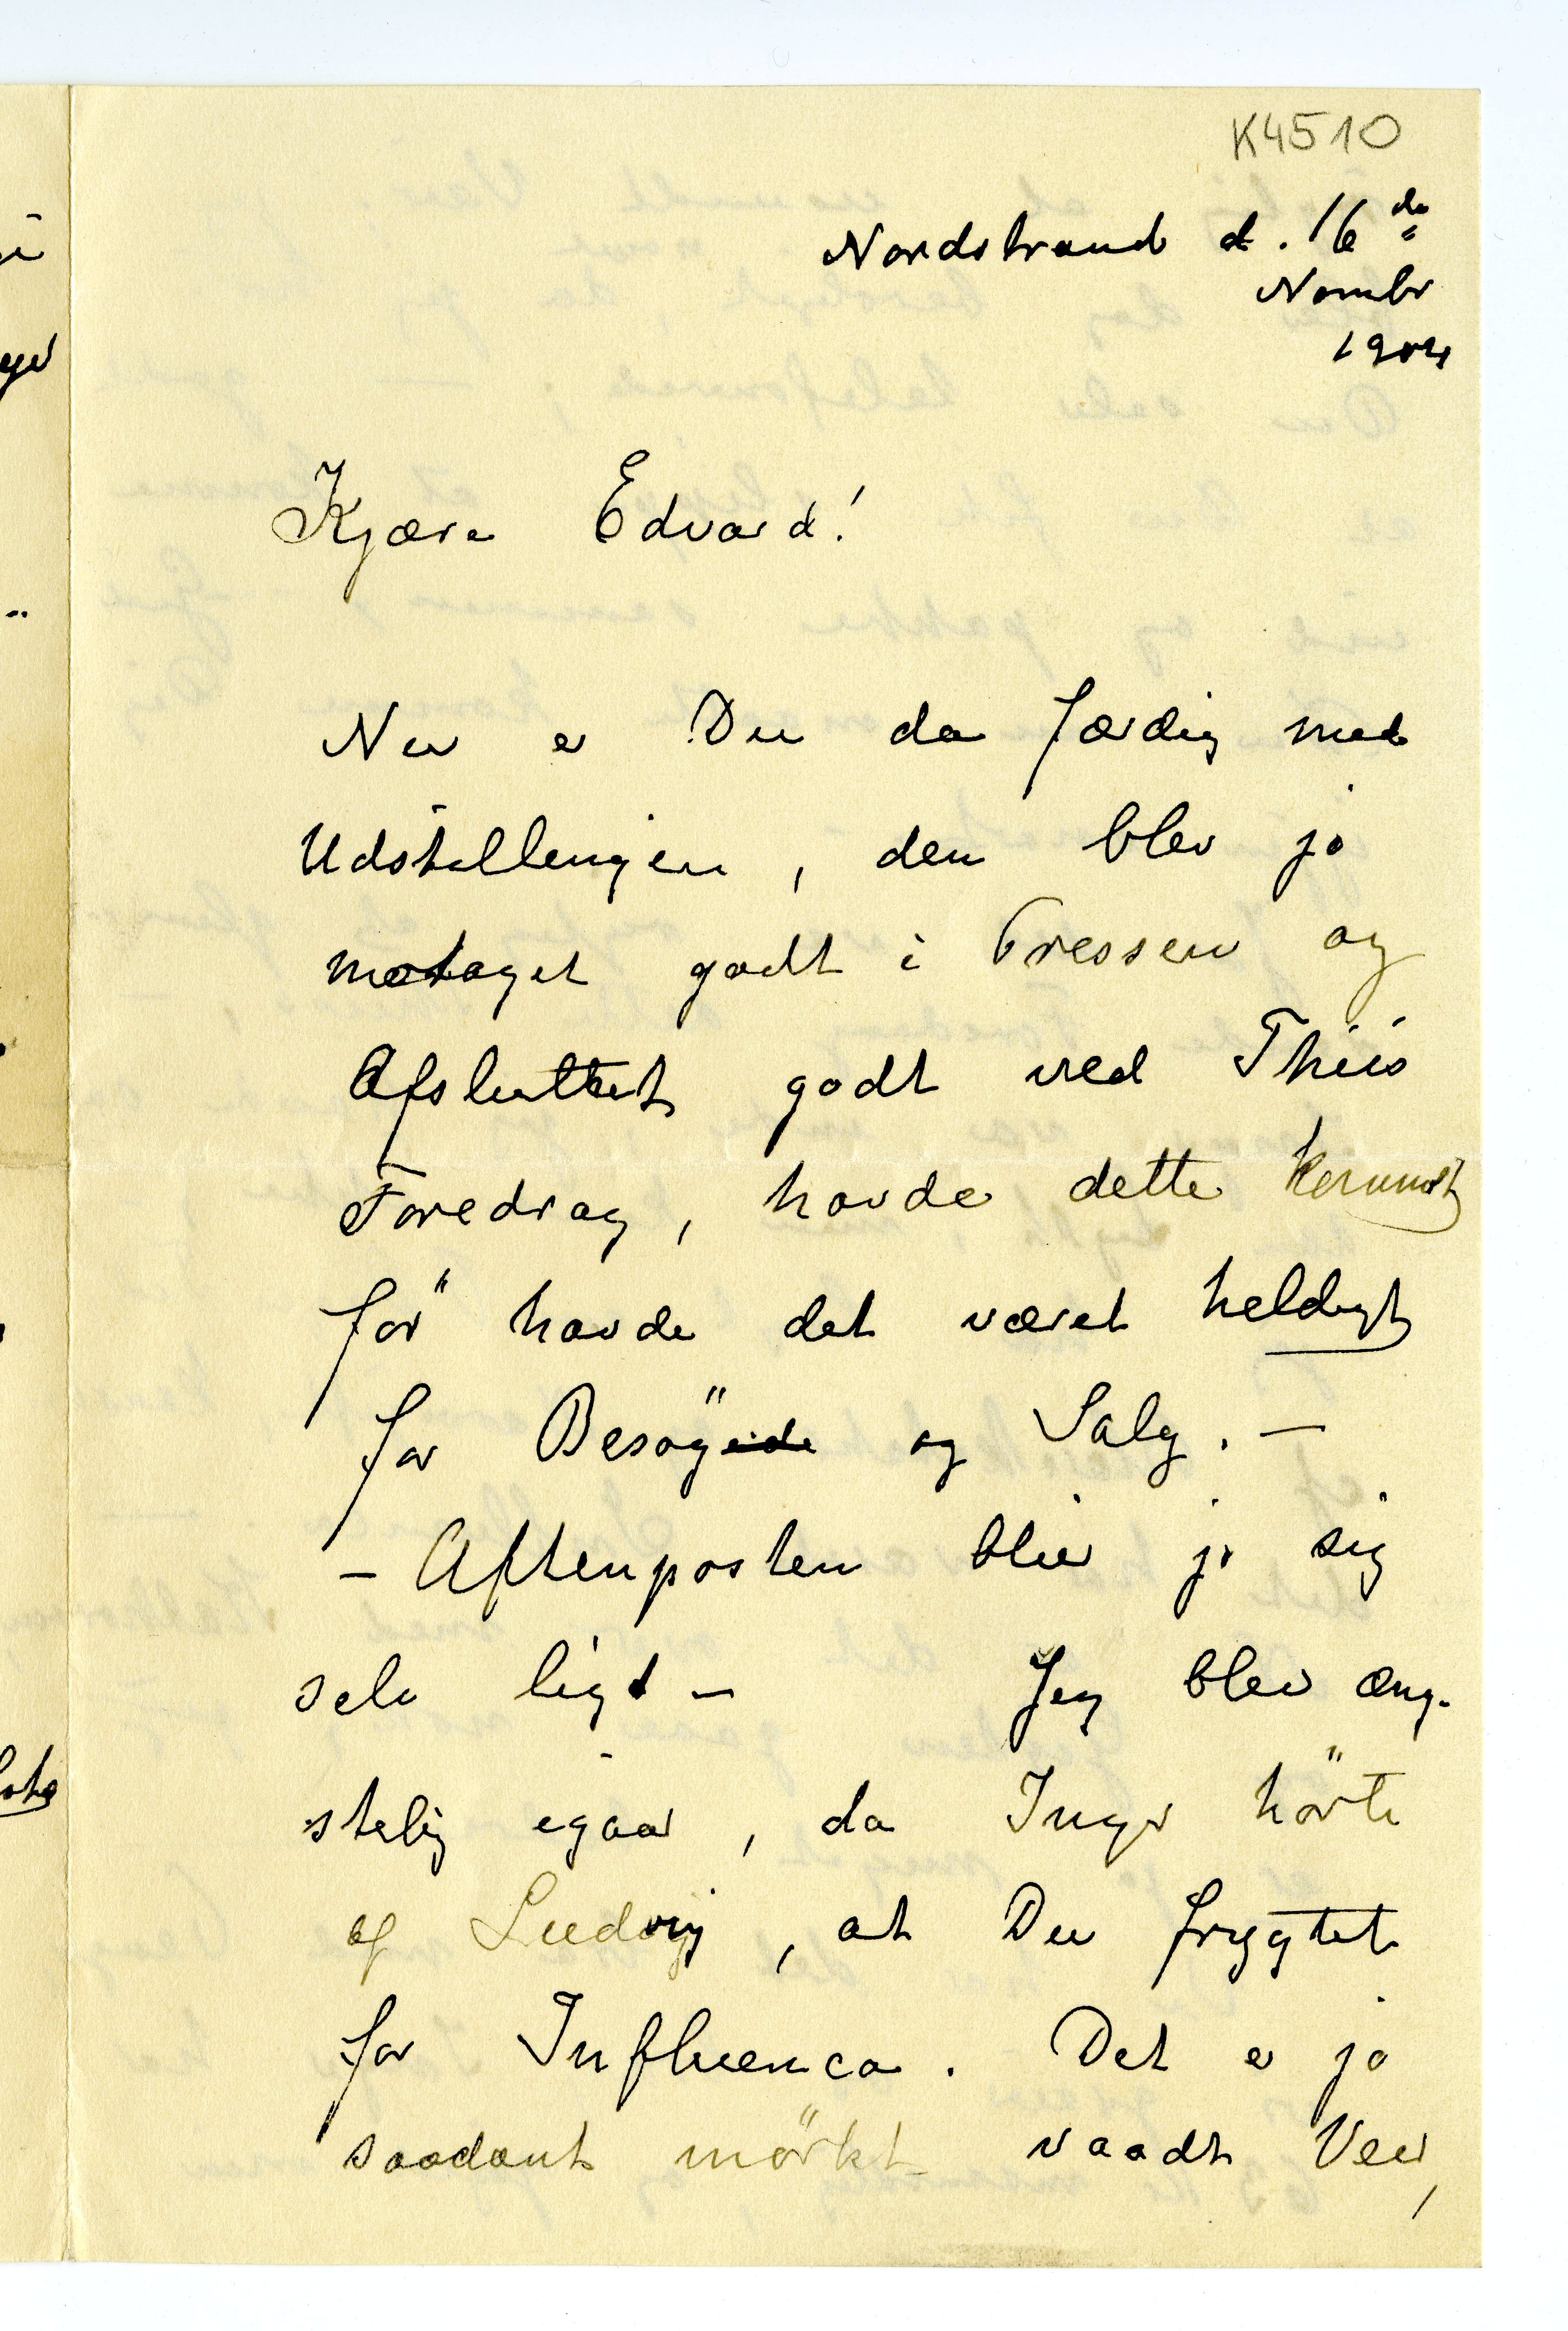 K4510
Nordstrand d. 16de
Novmbr
1904
Kjære Edvard!
Nu er Du da færdig med
Udstillingen, den blev ja
motaget godt i Pressen og
Afsluttet godt ved Thiis
Foredrag, havde dette kommet
för havde det været heldigt
for Besög og Salg. –
– Aftenposten blir jo sig
selv ligt – Jeg blev æng-
stelig igaar, da Inger hörte
af Ludvig, at Du frygtet
for Influenca. Det er ja
saadant mörkt vaadt Veir,